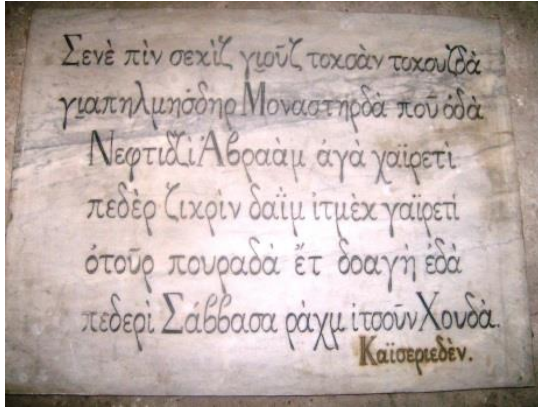 Σενὲ πὶν σεκὶζ γιοῦζ τοκσὰν τοκουζδὰ
γιαπηλμησδηρ Μοναστηρδὰ ποῦ ὀδὰ
Νεφτιδζὶ Ἀβραὰμ ἀγὰ χαϊρετὶ
πεδὲρ ζικρὶν δαΐμ ἰτμὲκ γαϊρετὶ
ὀτοῦρ πουραδὰ ἔτ δοαγὴ ἐδὰ
πεδερὶ Σάββασα ράχμ ἰτσοῦν Χουδὰ.
Καϊσεριεδὲν.